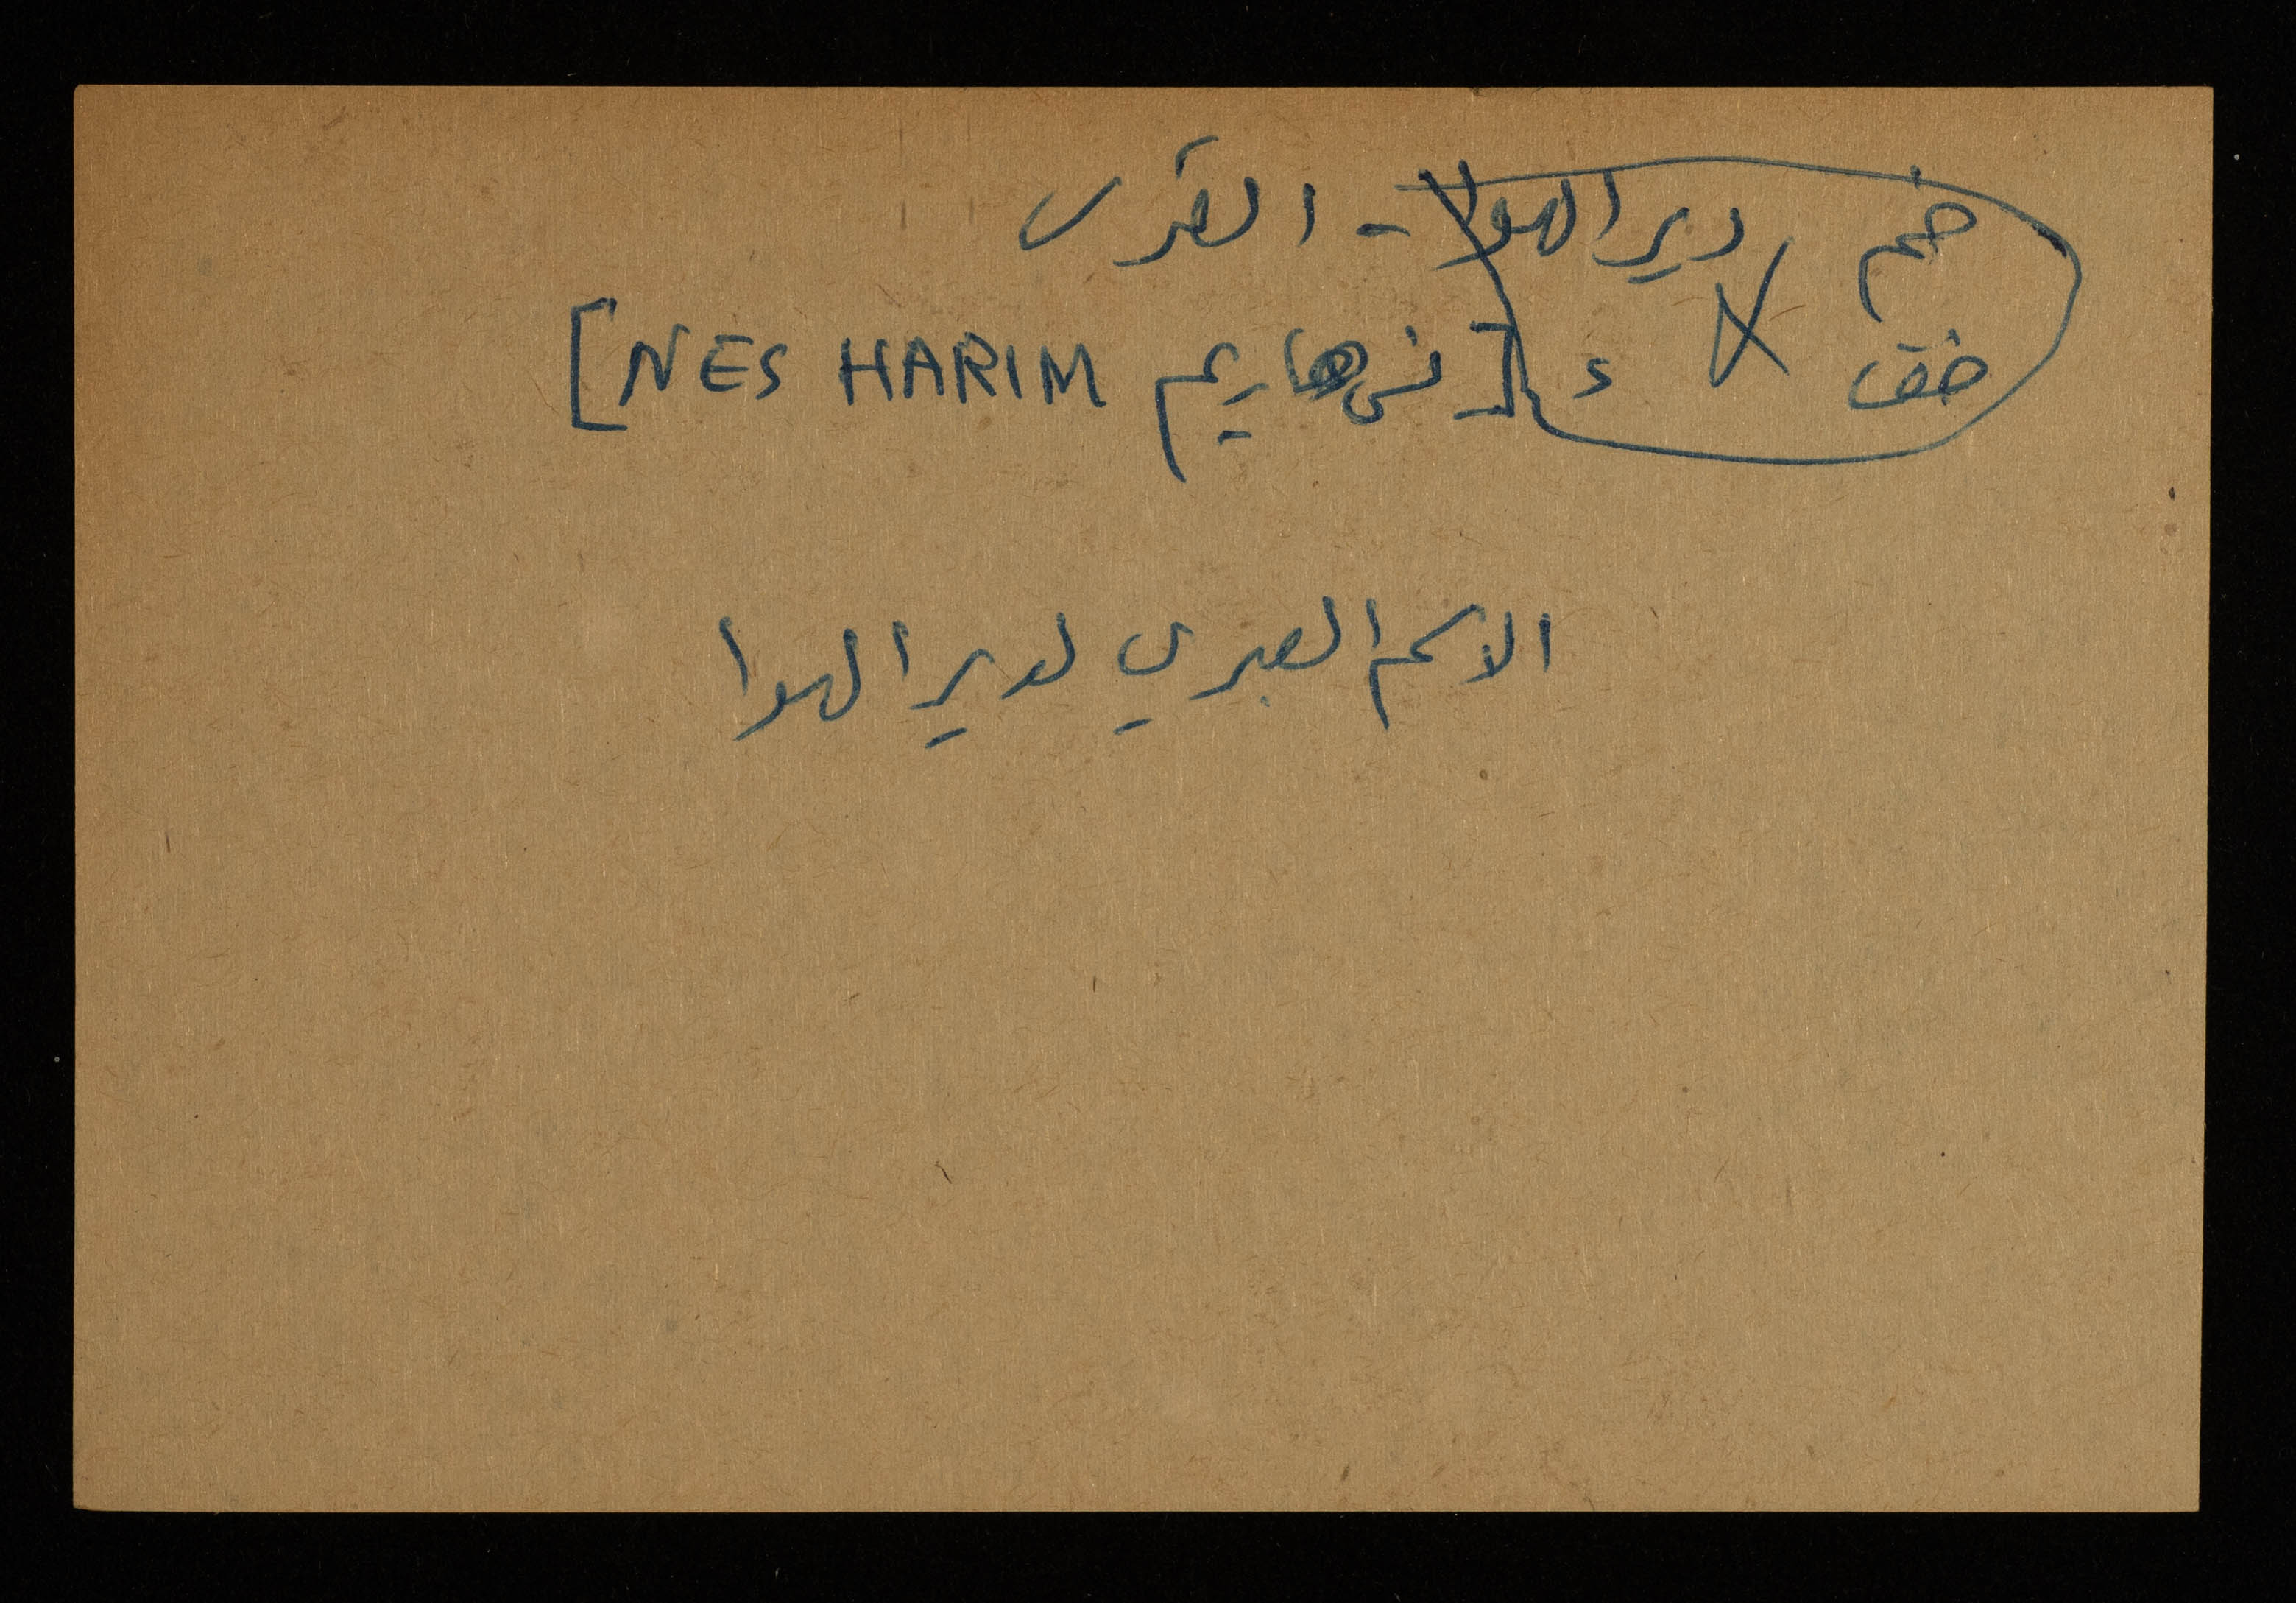 ضم دير الهوا - القدس
ضف لا د [نس هاريم NES HARIM]
الاسم العبري لدير الهوا